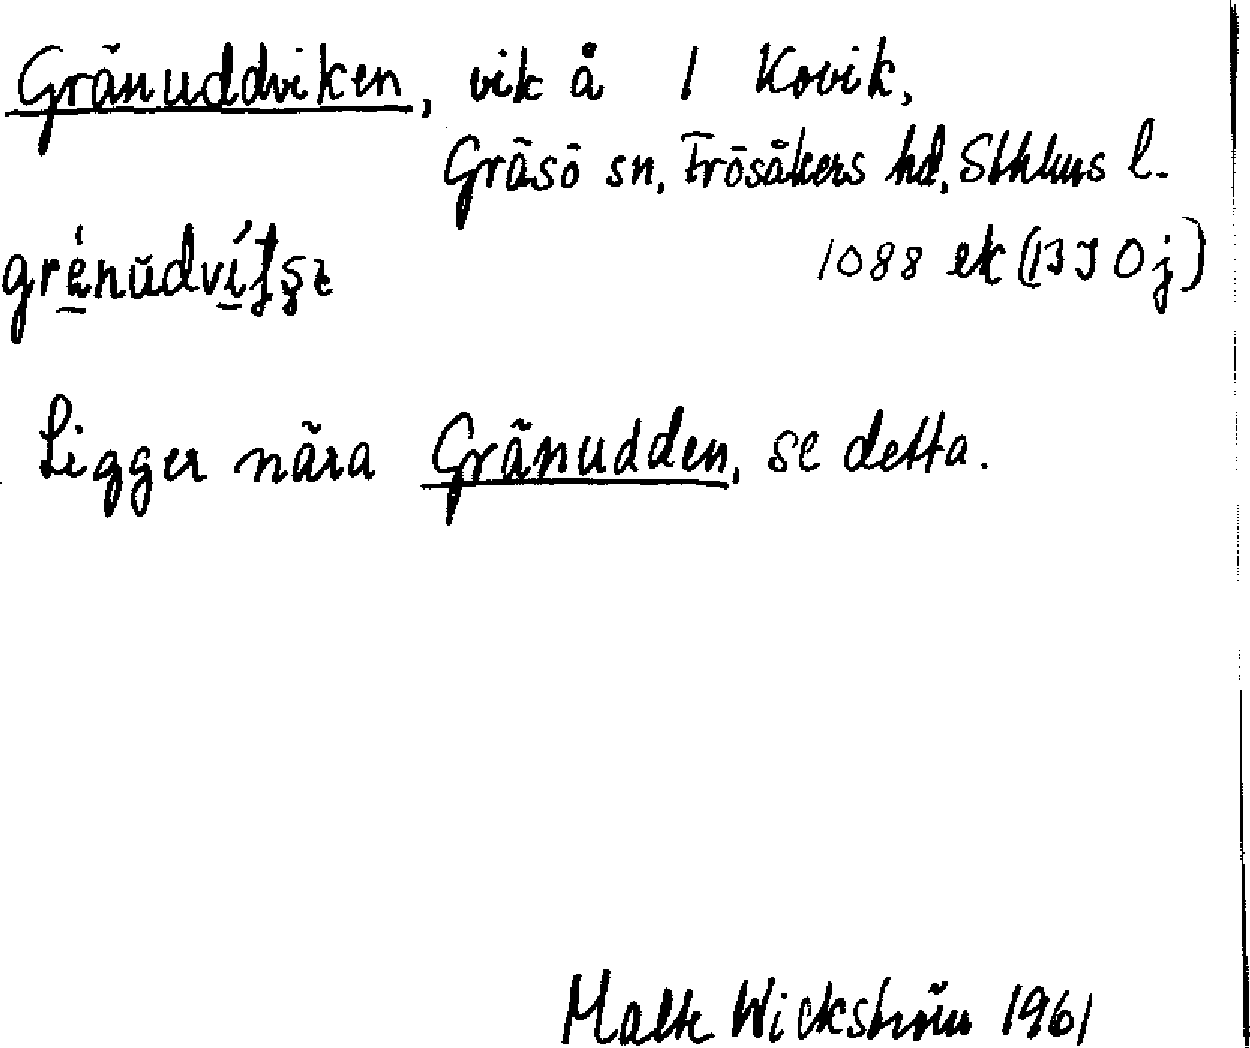 Gränuddviken, vik å 1 Kovik,
Gräsö sn, Frösåkers hd, Sthlms l.
1088 ek (13I 0j)
Ligger nära Gränudden, se detta.
Malte Wickström 1961